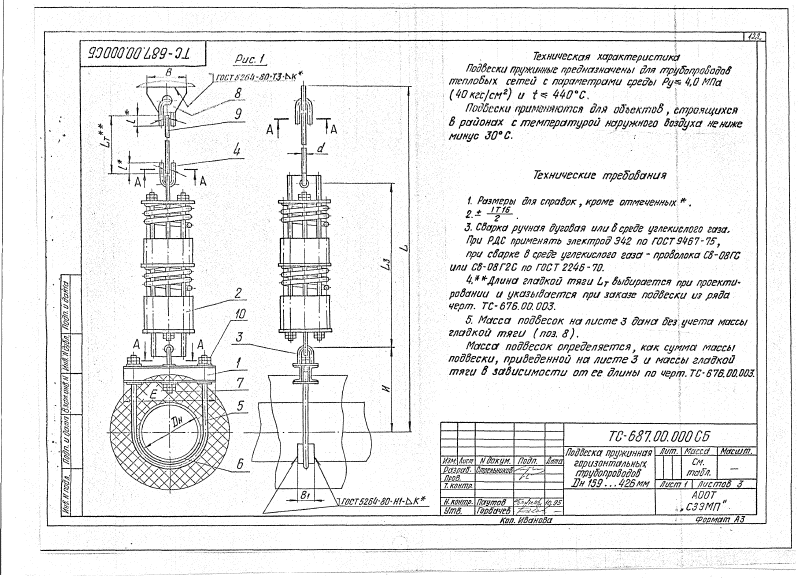 123
ТС-687.00.000СБ
Рис. 1
В
ГОСТ 5264-80-Т3-⊿К*
8
9
4
А А
А А
А А
L*
Lт**
L*
d
L
L3
H
2
10
3
1
7
E
Dн
5
6
В1
ГОСТ 5264-80-Н1-⊿К*
Техническая характеристика
Подвески пружинные предназначены для трубопроводов
тепловых сетей с параметрами среды Ру≤ 4,0 МПа
(40 кгс/см²) и t ≤ 440°С.
Подвески применяются для объектов, строящихся
в районах с температурой наружного воздуха не ниже
минус 30°С.
Технические требования
1. Размеры для справок, кроме отмеченных *.
2. ± IT16/2.
3. Сварка ручная дуговая или в среде углекислого газа.
При РДС применять электрод Э42 по ГОСТ 9467-75,
при сварке в среде углекислого газа - проволока СВ-08ГС
или СВ-08Г2С по ГОСТ 2246-70.
4.** Длина гладкой тяги Lт выбирается при проекти-
ровании и указывается при заказе подвески из ряда
черт. ТС-676.00.003.
5. Масса подвесок на листе 3 дана без учета массы
гладкой тяги (поз. 8).
Масса подвесок определяется, как сумма массы
подвески, приведенной на листе 3 и массы гладкой
тяги в зависимости от ее длины по черт. ТС-676.00.003.
ТС-687.00.000 СБ
Изм. Лист N докум. Подп. Дата
Разраб.
Пров.
Т. контр.
Н. контр. Паутов 10.95
Утв. Горбачев
Подвеска пружинная
горизонтальных
трубопроводов
Dн 159...426 мм
Лит. Масса Масшт.
См. табл. —
Лист 1 Листов 3
АООТ
„СЗЭМП"
Кол. Иванова
Формат А3
Инв. N подл. Подп. и дата Взам. инв. N Инв. N дубл. Подп. и дата